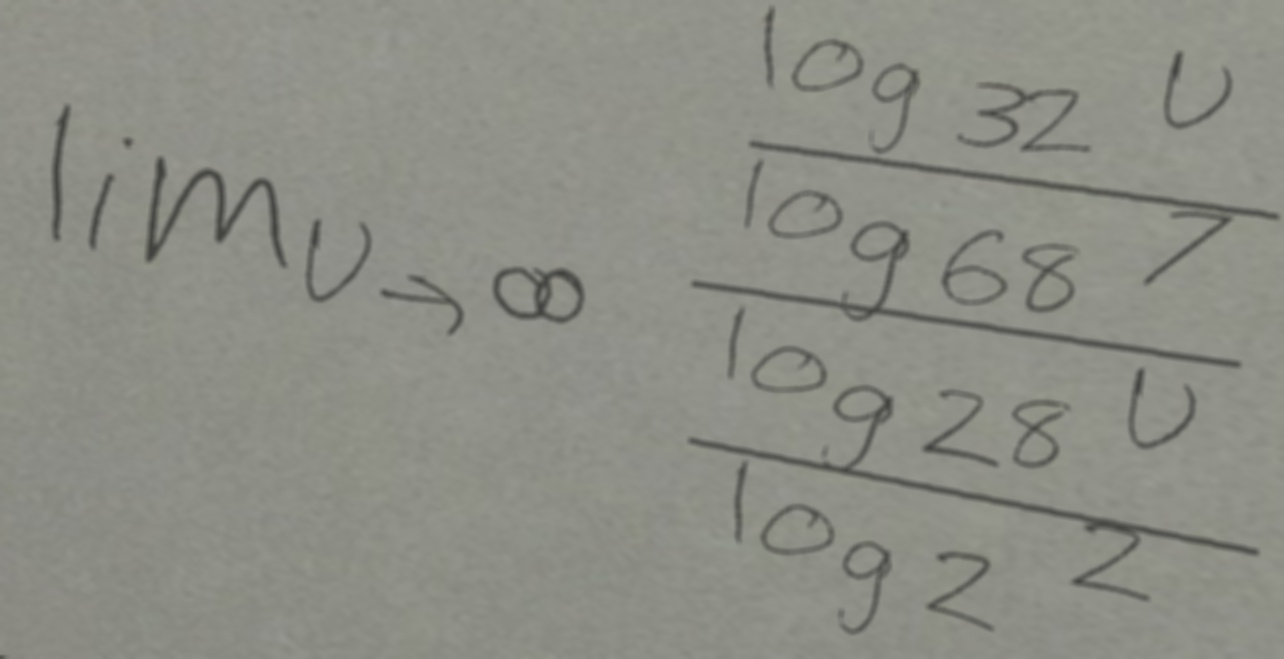 lim U → ∞ \frac{\frac{\log_{32} U}{\log_{68} 7}}{\frac{\log_{28} U}{\log_{2} 2}}